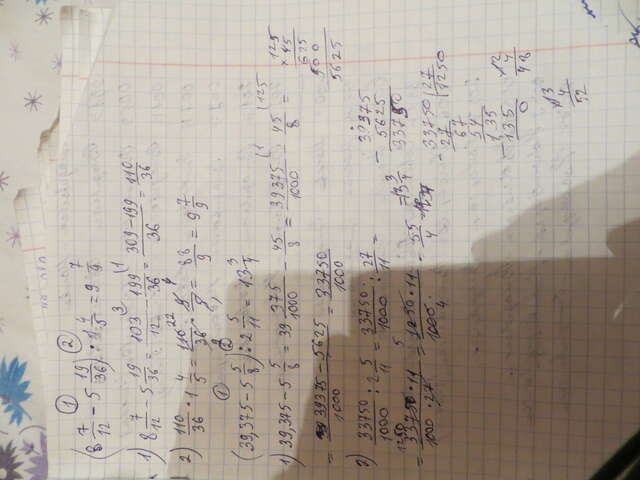 ① ②
(8 7/12 - 5 19/36) · 1 4/5 = 9 7/9
1) 8 7/12 - 5 19/36 = 103/12 - 199/36 = 309-199/36 = 110/36
2) 110/36 · 1 4/5 = 110/36 · 9/5 = 88/9 = 9 7/9
① ②
(39,375 - 5 5/8) : 2 5/11 = 13 3/4
1) 39,375 - 5 5/8 = 39 375/1000 - 45/8 = 39375/1000 - 45/8 =
= 39375 - 5625/1000 = 33750/1000
2) 33750/1000 : 2 5/11 = 33750/1000 : 27/11 =
= 33750 · 11/1000 · 27 = 1250 · 11/1000 = 55/4 = 13 3/4
125
× 45
625
500
5625
- 39375
5625
33750
- 33750 | 27
27 1250
67
54
135
- 135
0
12
4
48
13
4
52